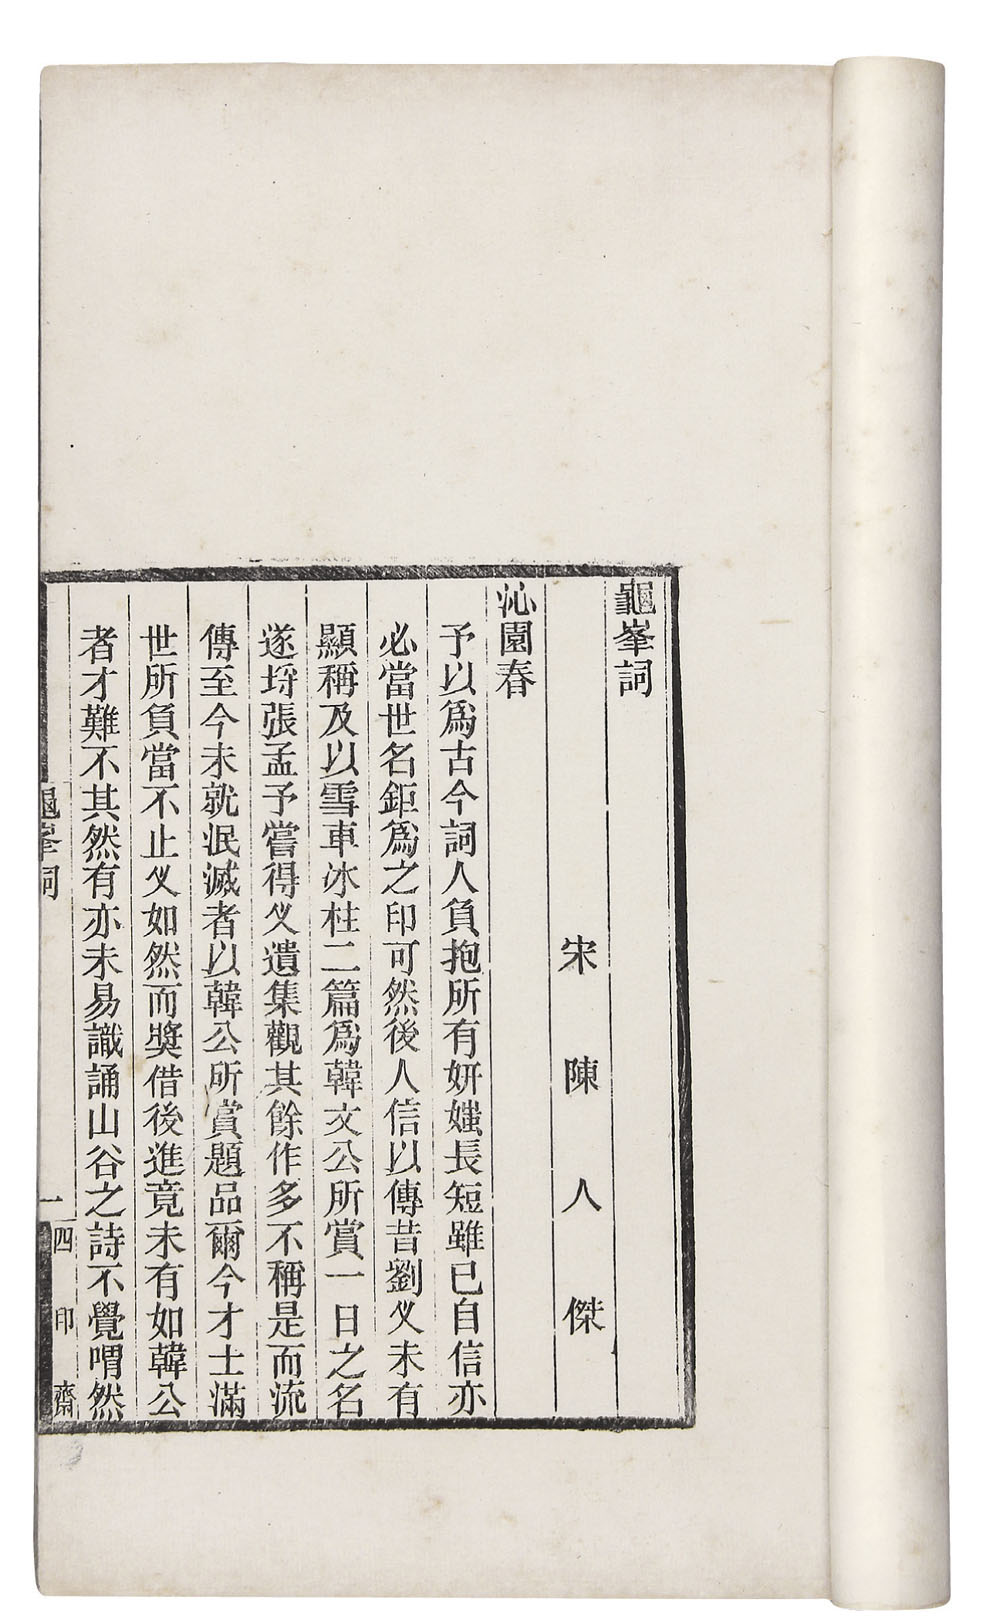 龜峯詞
宋陳人傑
沁園春
予以爲古今詞人負抱所有姸媸長短雖已自信亦
必當世名鉅爲之印可然後人信以傳昔劉义未有
顯稱及以雪車冰柱二篇爲韓文公所賞一日之名
遂埒張孟予嘗得义遺集觀其餘作多不稱是而流
傳至今未就泯滅者以韓公所賞題品爾今才士滿
世所負當不止义如然而獎借後進竟未有如韓公
者才難不其然有亦未易識誦山谷之詩不覺喟然
龜峯詞
一
四印齋